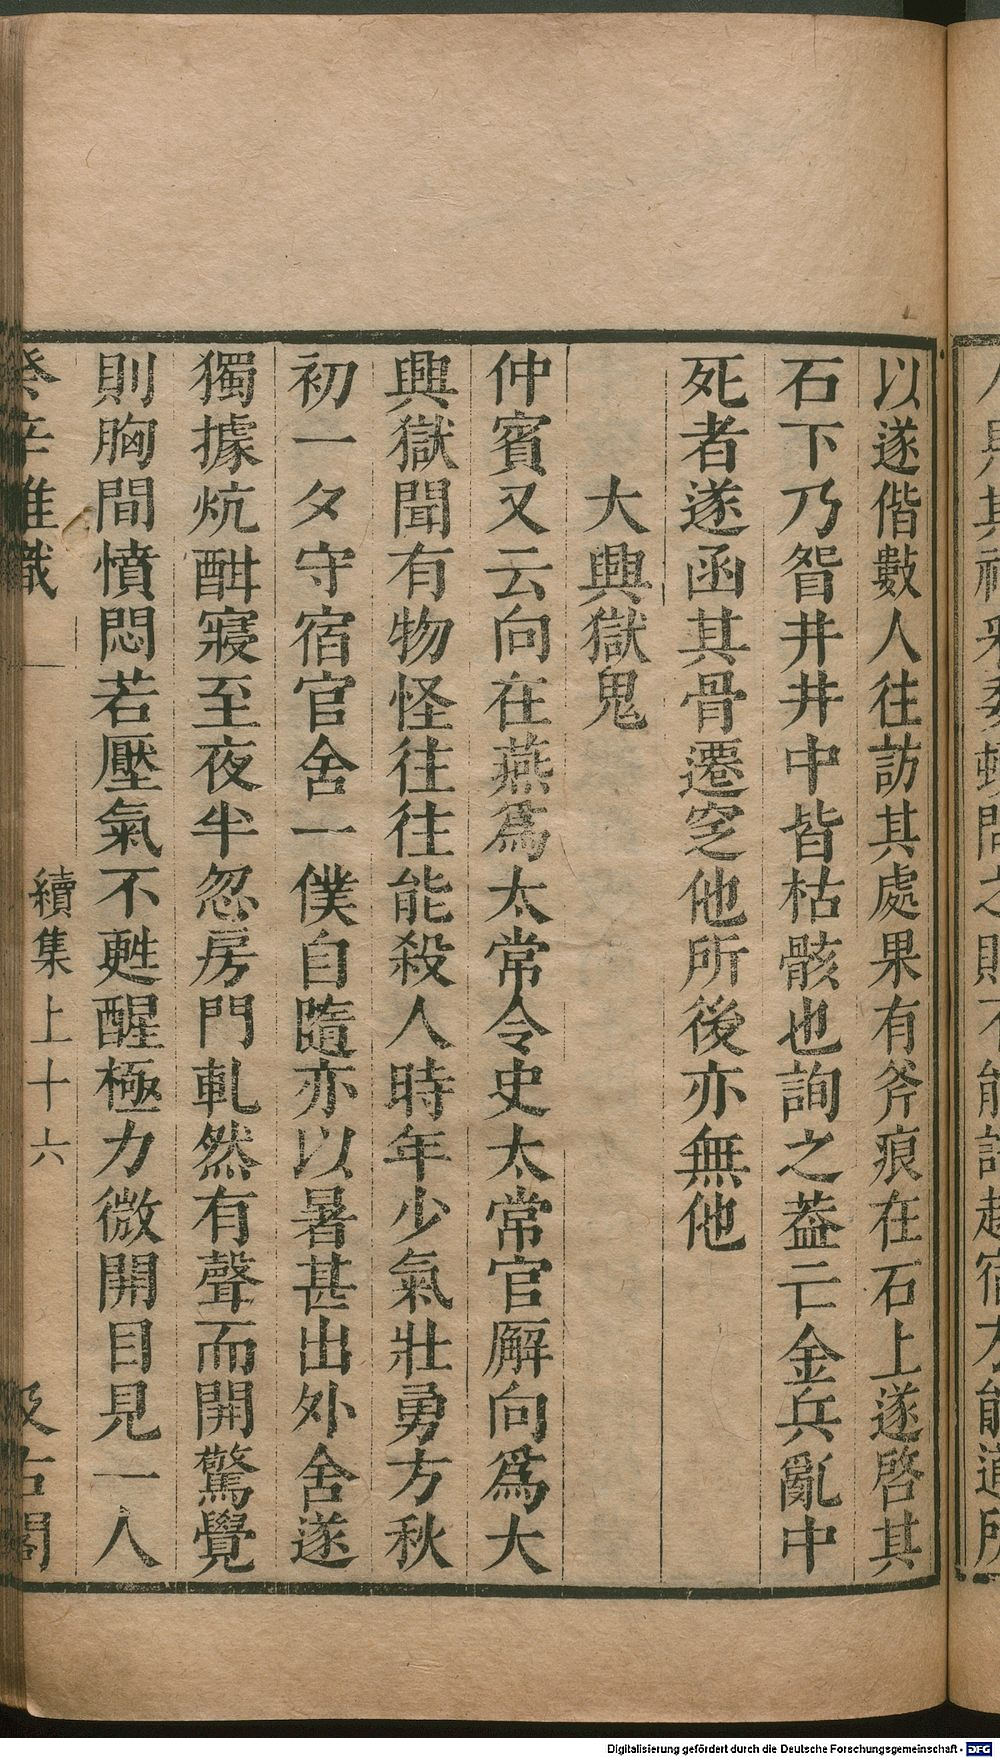 以遂偕數人往訪其處果有斧痕在石上遂啓其
石下乃眢井井中皆枯骸也詢之葢亡金兵亂中
死者遂函其骨遷窆他所後亦無他
大興獄鬼
仲賓又云向在燕爲太常令史太常官廨向爲大
興獄聞有物怪往往能殺人時年少氣壯勇方秋
初一夕守宿官舍一僕自隨亦以暑甚出外舍遂
獨據炕酣寢至夜半忽房門軋然有聲而開驚覺
則胸間憤悶若壓氣不甦醒極力微開目見一人
癸辛雜識 續集上十六 汲古閣
Digitalisierung gefördert durch die Deutsche Forschungsgemeinschaft - DFG